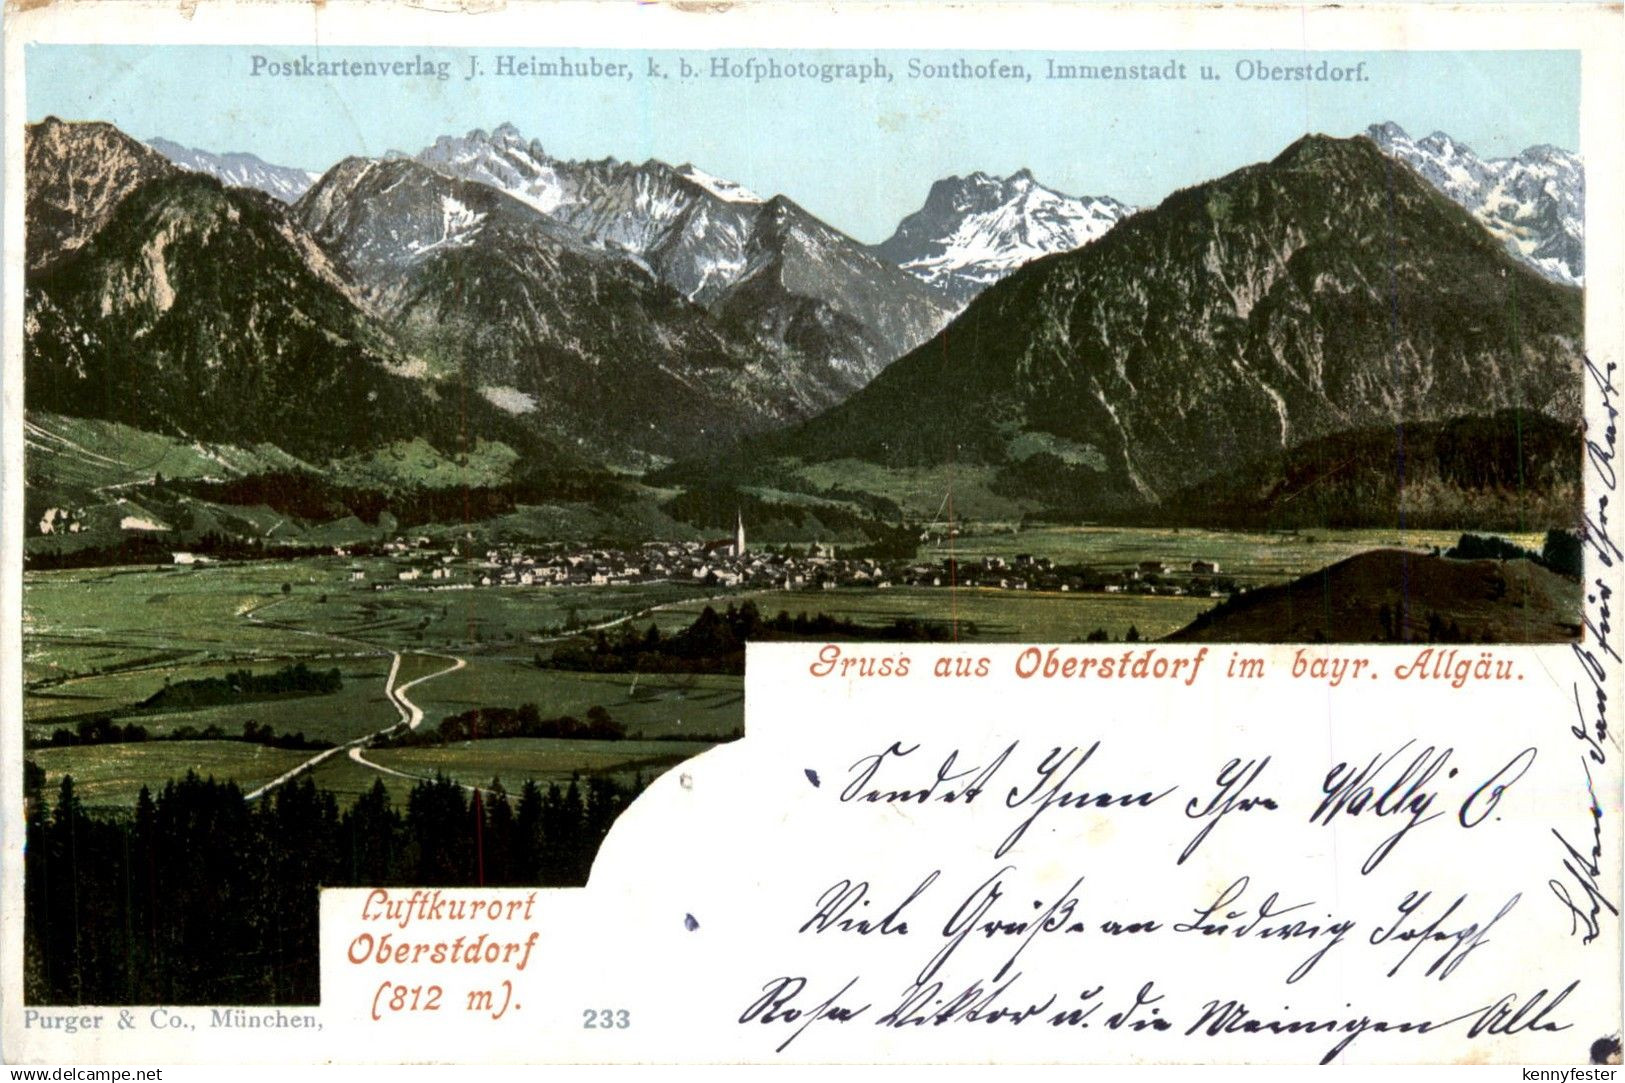 Postkartenverlag J. Heimhuber, k. b. Hofphotograph, Sonthofen, Immenstadt u. Oberstdorf.
Gruss aus Oberstdorf im bayr. Allgäu.
Sendet Ihnen Ihre Wally B.
Viele Grüße an Ludwig Joseph
Rosa Viktor u. die Meinigen Alle
Besten Dank für Ihre Karte
Luftkurort
Oberstdorf
(812 m).
Purger & Co., München,
233
www.delcampe.net
kennyfester